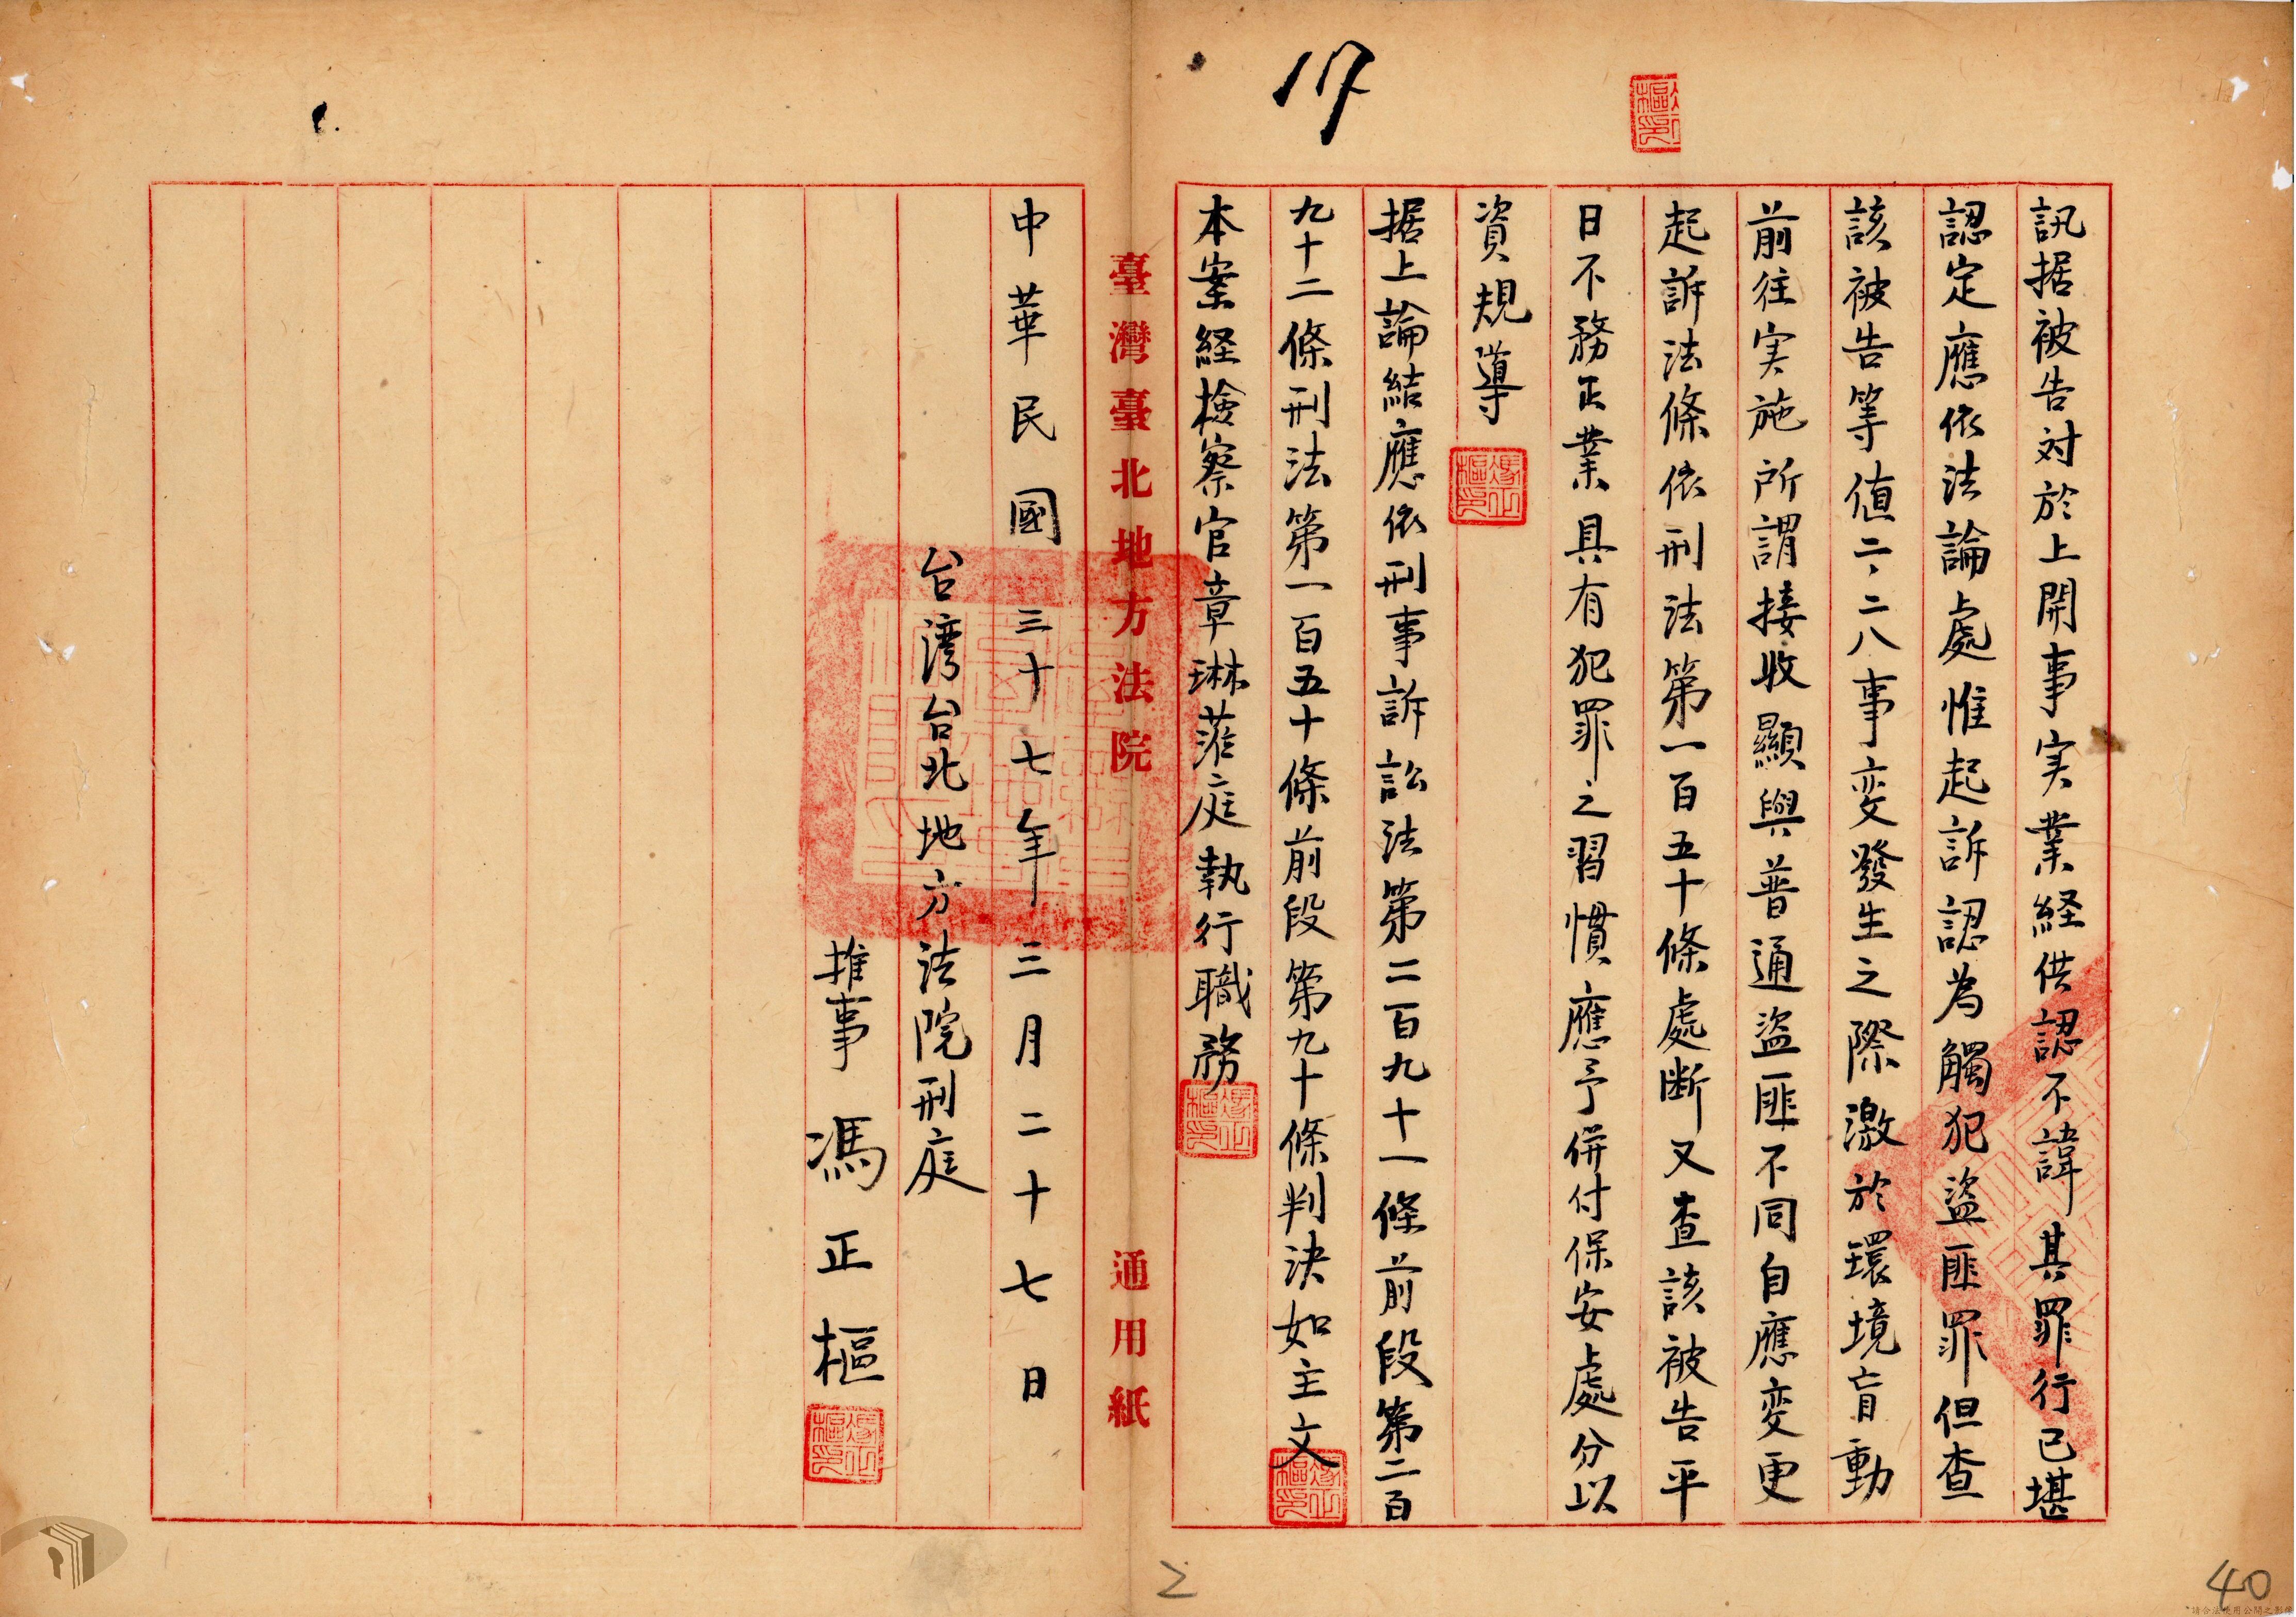 17
訊据被告対於上開事实業経供認不諱其罪行已堪
認定應依法論處惟起訴認為觸犯盜匪罪但查
該被告等值二、二八事変發生之際激於環境盲動
前往实施所謂接收顯與普通盜匪不同自應変更
起訴法條依刑法第一百五十條處断又查該被告平
日不務正業具有犯罪之習慣應予併付保安處分以
資規導
据上論結應依刑事訴訟法第二百九十一條前段第二百
九十二條刑法第一百五十條前段第九十條判決如主文
本案経檢察官章琳蒞庭執行職務
臺灣臺北地方法院 通用紙
中華民國三十七年三月二十七日
台湾台北地方法院刑庭
推事 馮正樞
馮正樞印
2
40